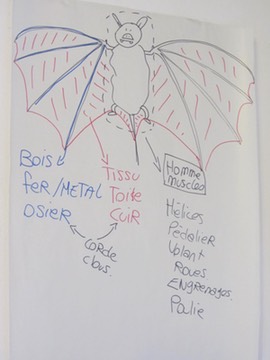 Bois
fer/METAL
OSIER
Tissu
Toile
CUIR
Corde
clous.
Homme
muscles
Hélices
Pédalier
Volant
Roues
ENgrenages.
Poulie